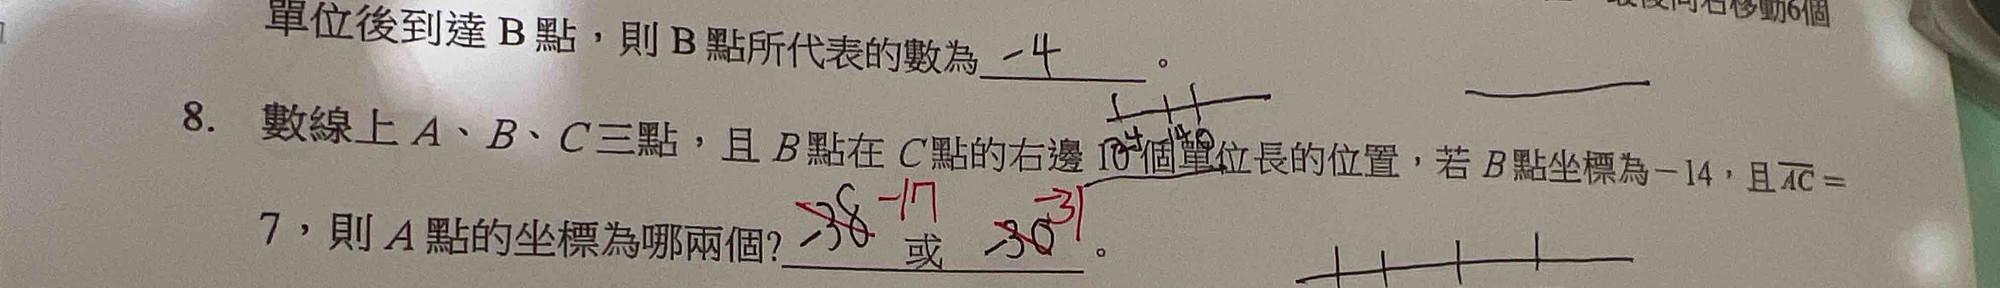 移動6個
單位後到達 B 點，則 B 點所代表的數為 -4 。
8. 數線上 A、B、C 三點，且 B 點在 C 點的右邊 10 個單位長的位置，若 B 點坐標為 -14，且 AC =
7，則 A 點的坐標為哪兩個? -38 -17 或 -30 -31 。